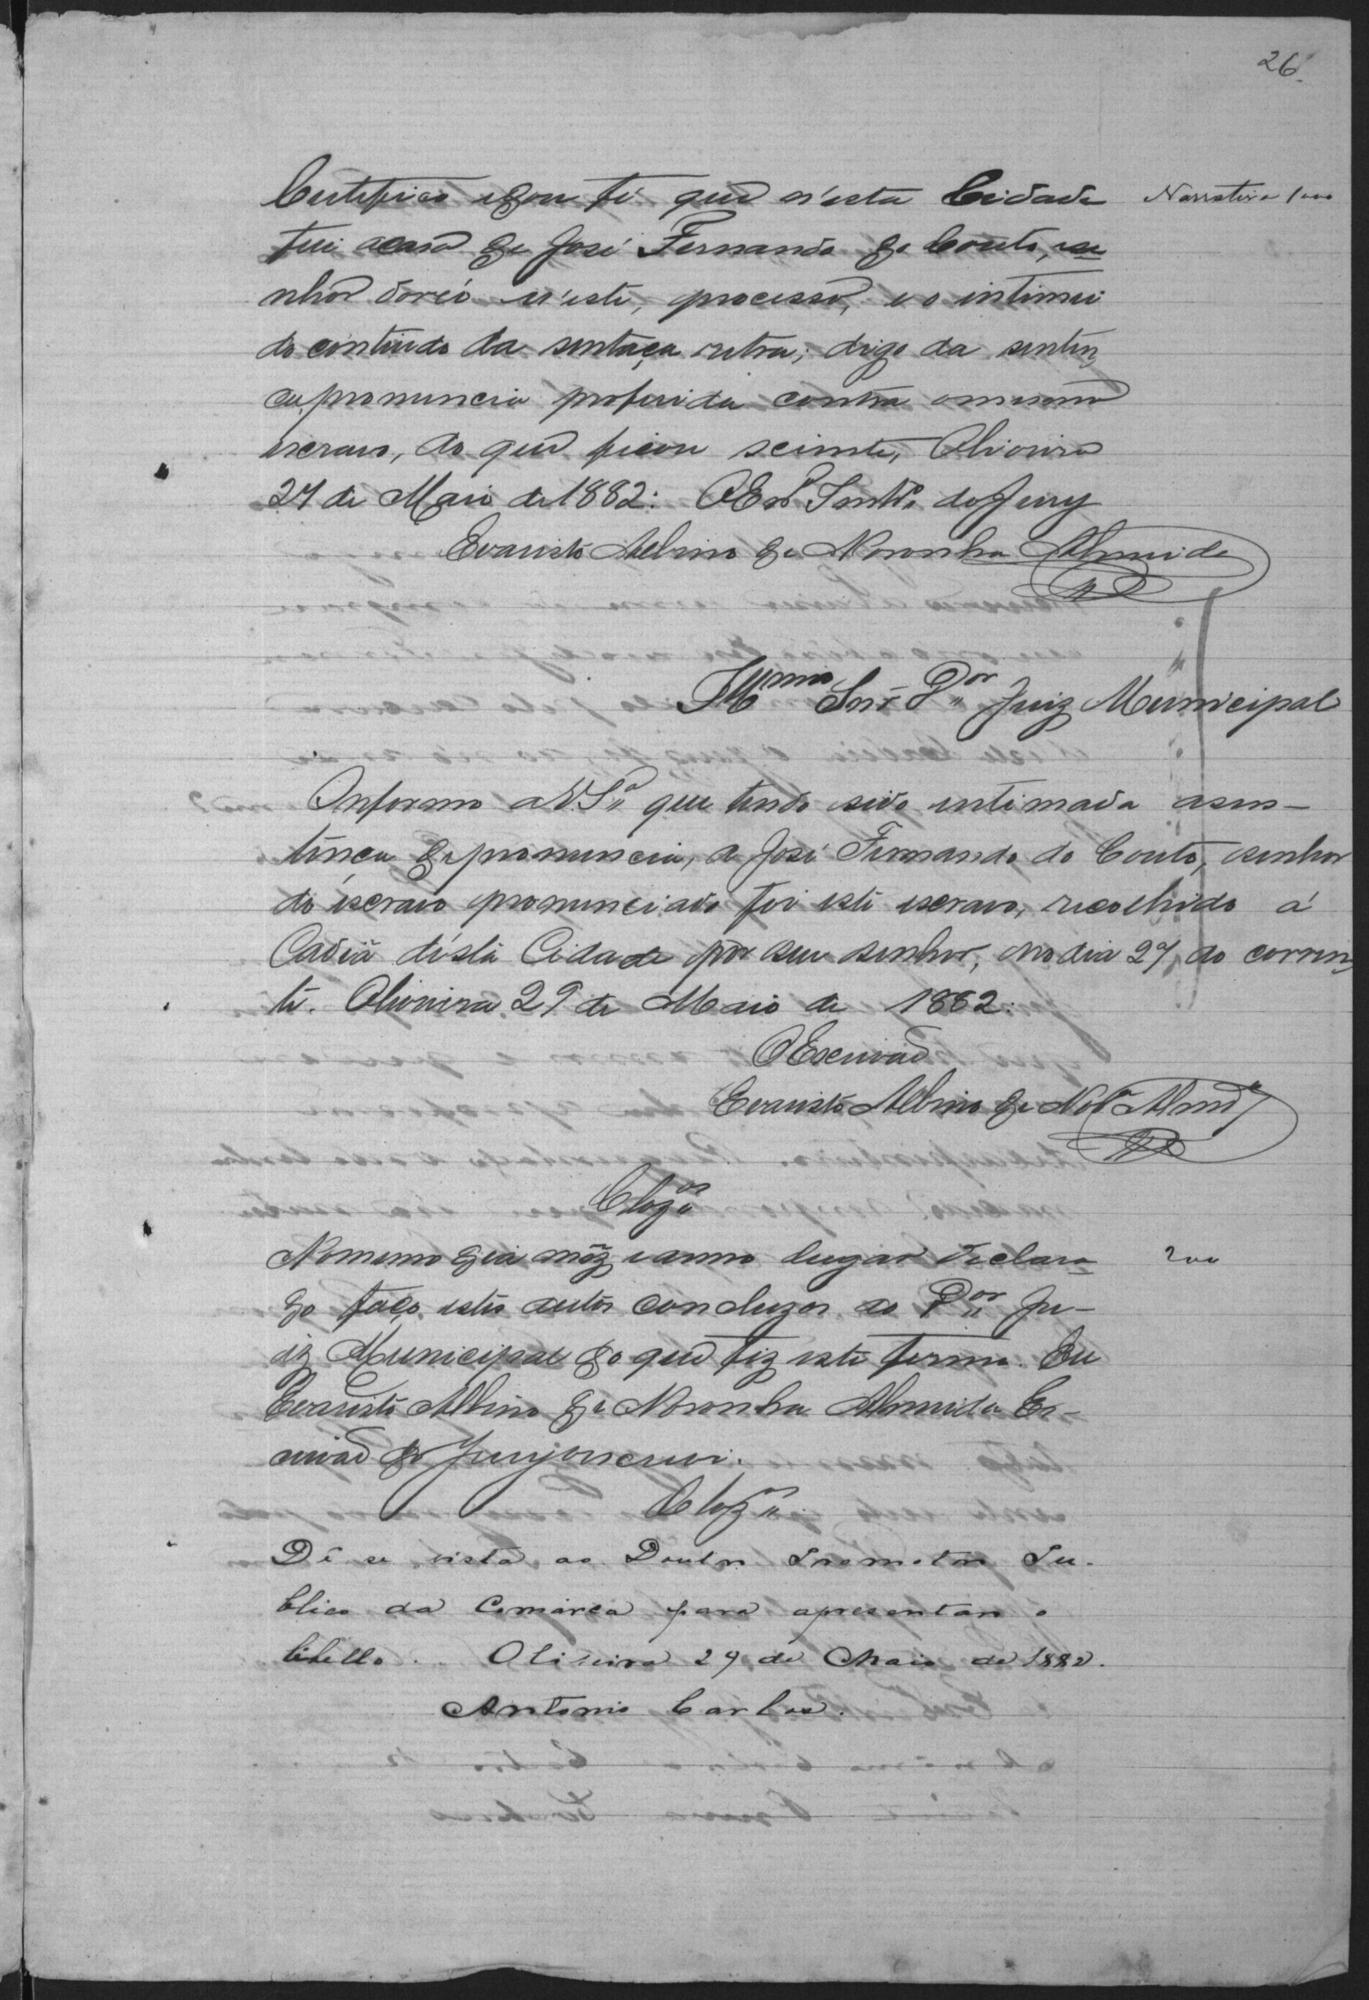 26.
Certifico e dou fé que n'esta Cidade
Narrativa 1000
fui a casa de José Fernando do Couto, se
nhor do réo n'este, processo, e o intimei
do contiudo da sentaça retra; digo da senten
ça pronuncia proferida contra o mesmo
escravo, do que ficou sciente, Oliveira
27 de Maio de 1882. O Esc.m do Jury
Evaristo Albino de Noronha Almeida
Illmo Snr Dor Juiz Municipal
Informo a V Sª que tendo sido intimada a sen-
tença de pronuncia, a José Fernando do Couto, senhor
do escravo pronunciado foi este escravo, recolhido á
Cadeia désta Cidade por seu senhor, no dia 27 do corren
te. Oliveira 29 de Maio de 1882.
O Escrivão
Evaristo Albino de Norª Almdª
Clzos
No mesmo dia mêz e anno lugar declara
200
do faço estes autos concluzos ao Dor Ju-
iz Municipal do que fiz este termo. Eu
Evaristo Albino de Noronha Almeida Es-
crivão do Jury o escrevi.
Clzos
Dê se vista ao Doutor Promotor Pu-
blico da Comarca para apresentar o
libello. Oliveira 29 de Maio de 1882.
Antonio Carlos.